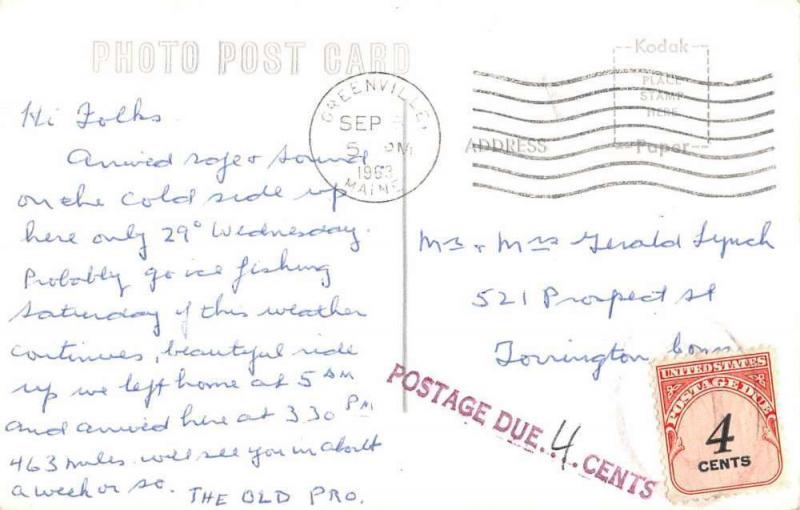 PHOTO POST CARD
Hi Folks
Arrived safe & sound
on the cold side up
here only 29° Wednesday.
Probably go ice fishing
Saturday if this weather
continues, beautiful ride
up we left home at 5 AM
and arrived here at 3 30 PM
463 miles will see you in about
a week or so. THE OLD PRO.
GREENVILLE,
SEP
5 PM
1963
MAINE
Kodak
PLACE
STAMP
HERE
Paper
ADDRESS
Mr + Mrs Gerald Lynch
521 Prospect St
Torrington, Conn
POSTAGE DUE...4...CENTS
UNITED STATES
POSTAGE DUE
4
CENTS